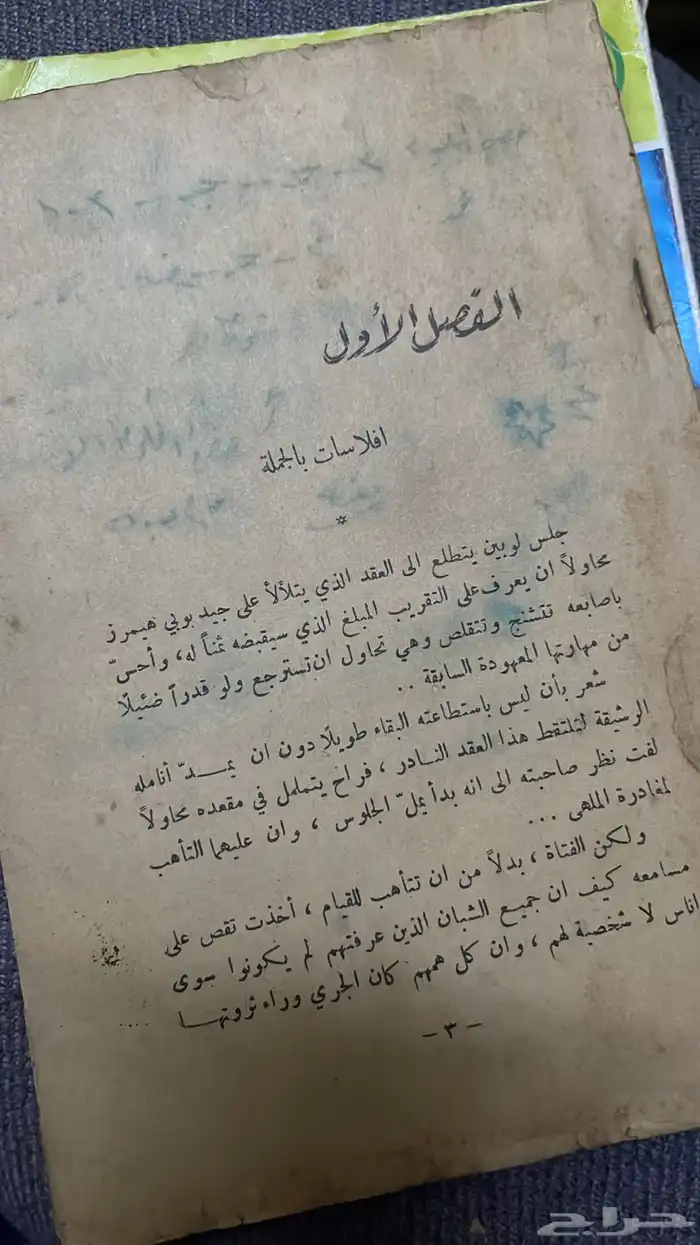 الفصل الأول
افلاسات بالجملة
*
جلس لوبين يتطلع الى العقد الذي يتلألأ على جيد بوبي هيمرز
محاولاً ان يعرف على التقريب المبلغ الذي سيقبضه ثمناً له، وأحسّ
باصابعه تتشنج وتتقلص وهي تحاول ان تسترجع ولو قدراً ضئيلاً
من مهارتها المعهودة السابقة ..
شعر بأن ليس باستطاعته البقاء طويلاً دون ان يمـــدّ أنامله
الرشيقة لتلتقط هذا العقد النــادر ، فراح يتململ في مقعده محاولاً
لفت نظر صاحبته الى انه بدأ يملّ الجلوس ، وان عليهما التأهب
لمغادرة الملهى ...
ولكن الفتاة ، بدلاً من ان تتأهب للقيام ، أخذت تقص على
مسامعه كيف ان جميع الشبان الذين عرفتهم لم يكونوا سوى
اناس لا شخصية لهم ، وان كل همهم كان الجري وراء ثروتهــا
- ٣ -
حراج